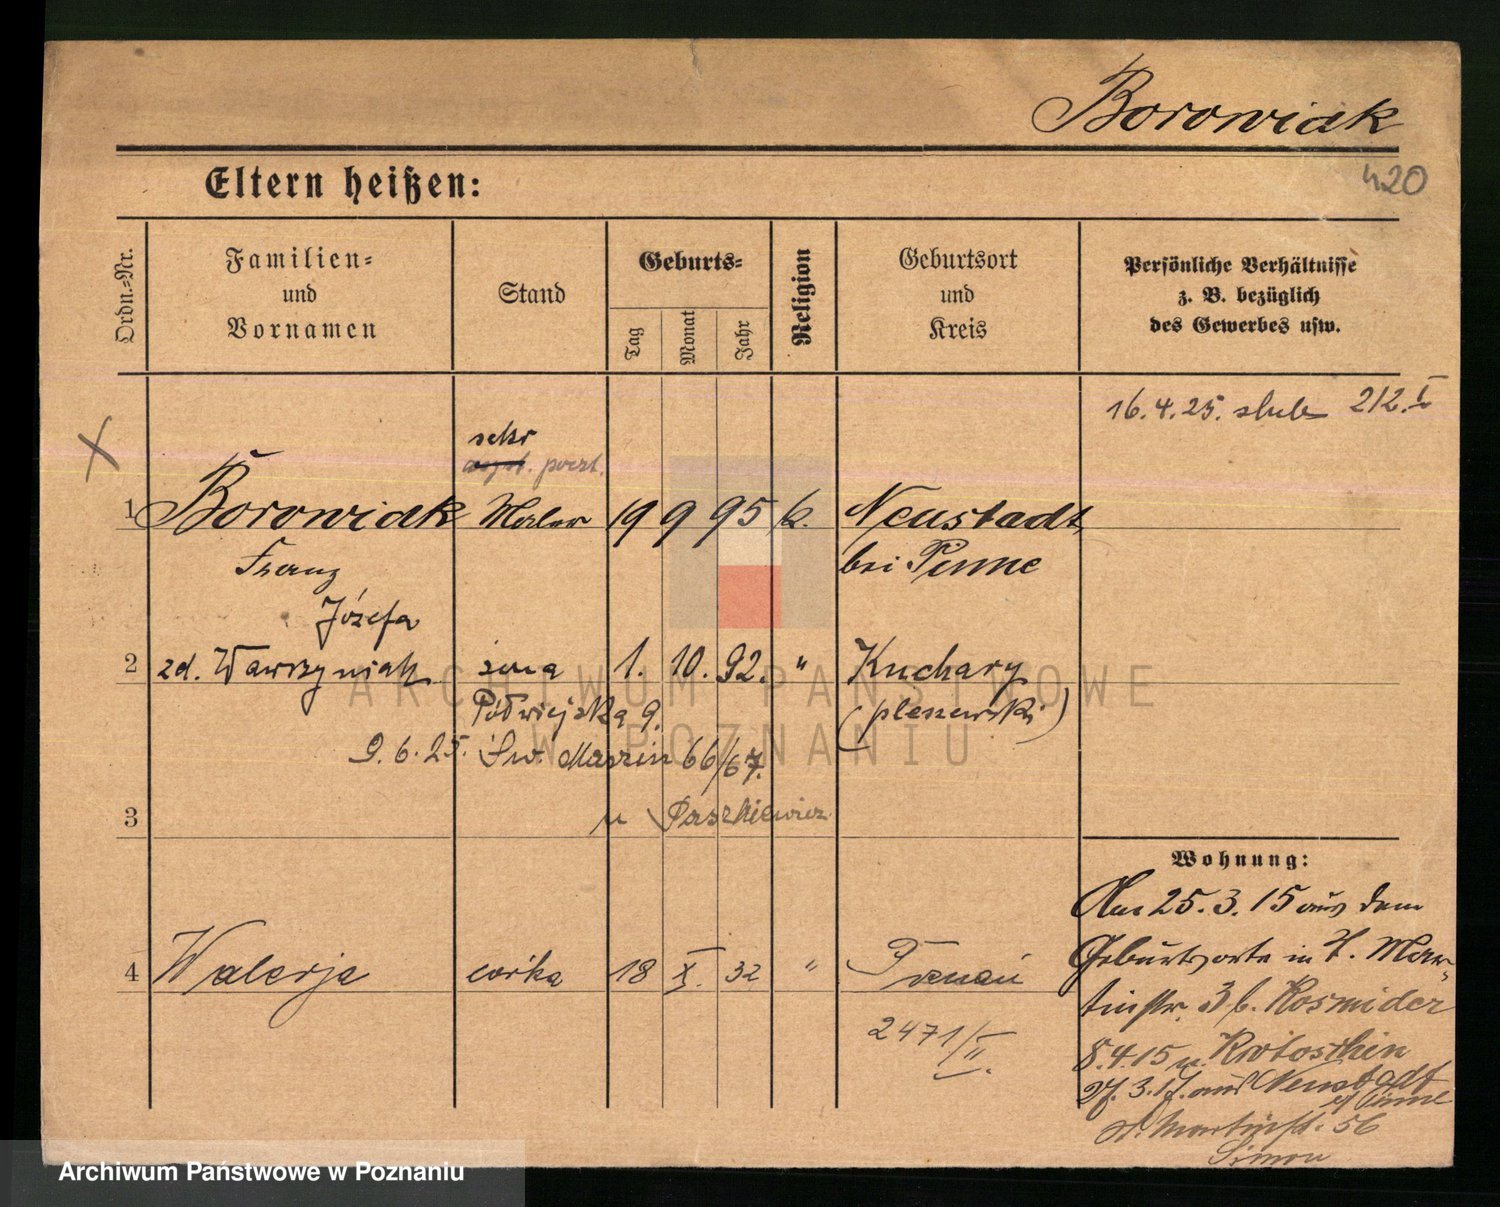 Borowiak
420
Eltern heißen:
Ordn.-Nr.
Familien- und Vornamen
Stand
Geburts-
Tag
Monat
Jahr
Religion
Geburtsort und Kreis
Persönliche Verhältnisse z. B. bezüglich des Gewerbes usw.
16. 4. 25. ślub 212. I
X
sekr
asyst. poczt.
1 Borowiak Maler 19 9 95 k. Neustadt
Franz bei Pinne
Józefa
2 zd. Wawrzyniak żona 1. 10. 92. " Kuchary
Półwiejska 9. (pleszewski)
9. 6. 25. Św. Marcin 66/67.
u Paszkiewicz
3
Wohnung:
Am 25. 3. 15 aus dem
Geburtsorte in St. Mar-
tinstr. 3 b. Kosmider
8. 4. 15 n. Krotoschin
27. 3. 17. aus Neustadt
b/ Pinne
St. Martinstr. 56
Simon
4 Walerja córka 18 X. 32 " Poznań
2471/II.
ARCHIWUM PAŃSTWOWE
W POZNANIU
Archiwum Państwowe w Poznaniu